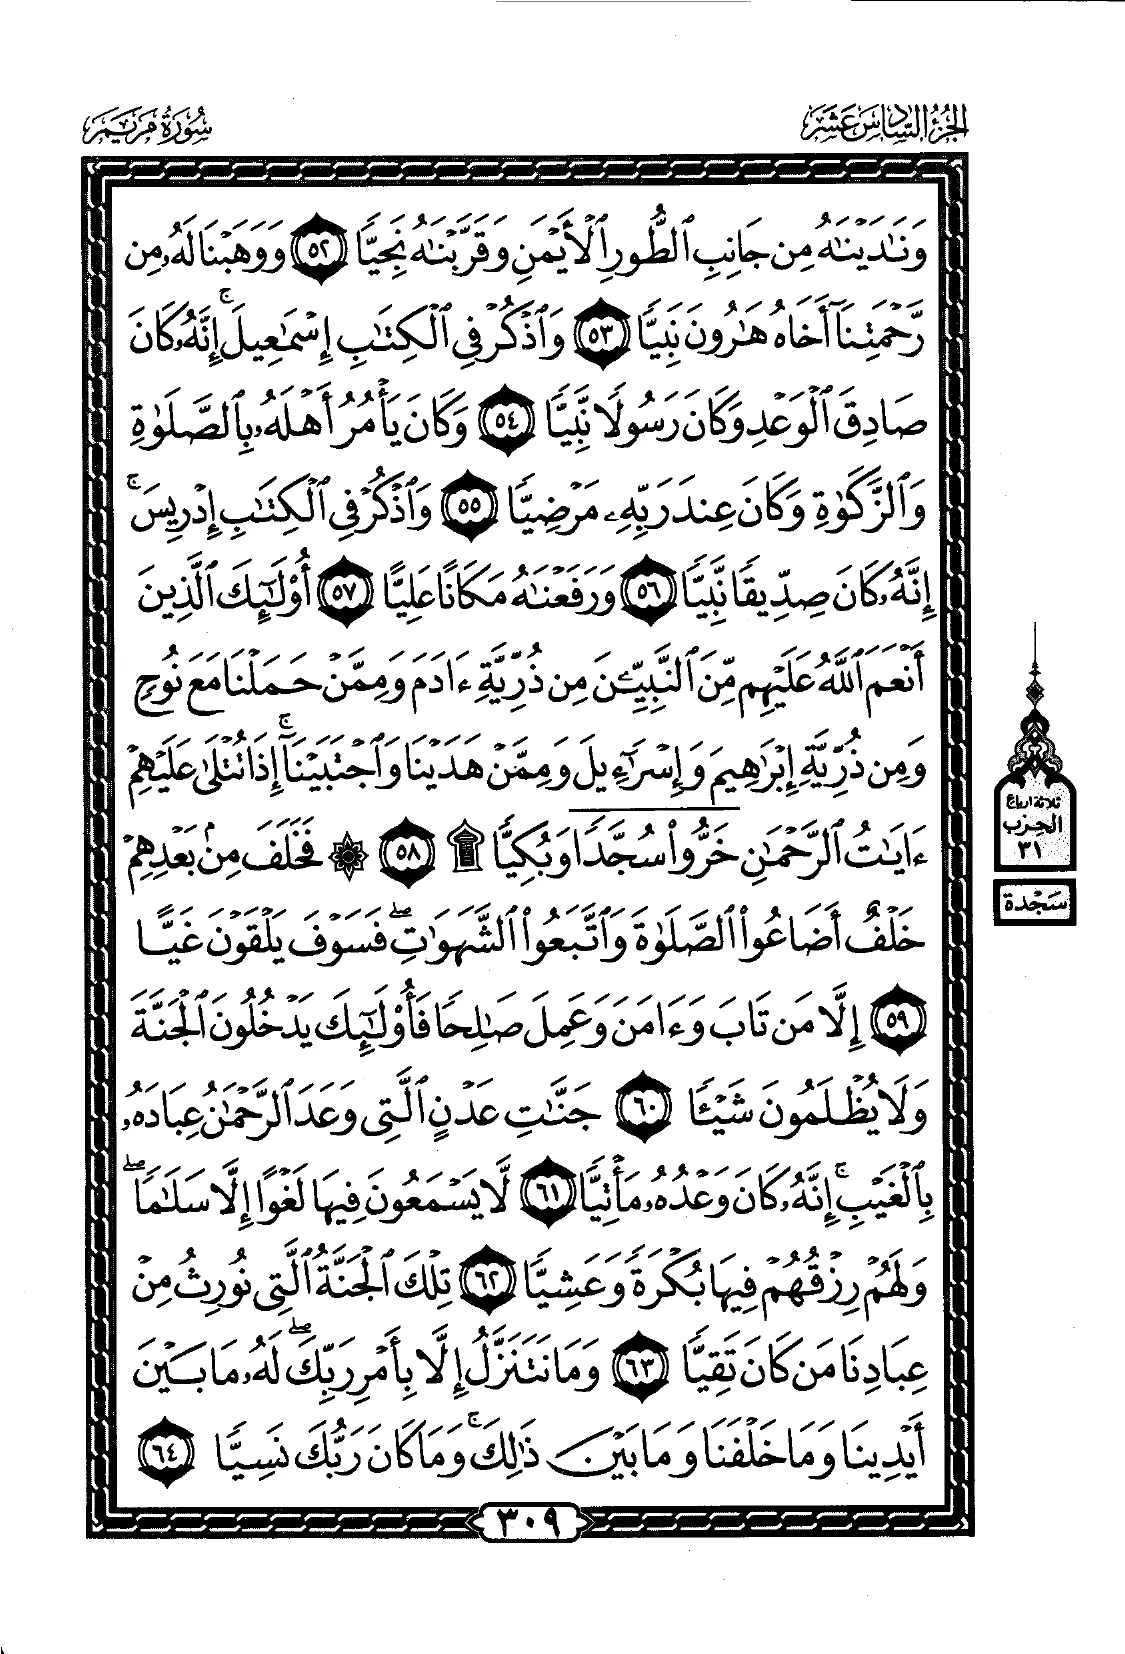 الجزء السادس عشر
سورة مريم
وَنَٰدَيْنَٰهُ مِن جَانِبِ ٱلطُّورِ ٱلْأَيْمَنِ وَقَرَّبْنَٰهُ نَجِيًّا ٥٢ وَوَهَبْنَا لَهُۥ مِن
رَّحْمَتِنَآ أَخَاهُ هَٰرُونَ نَبِيًّا ٥٣ وَٱذْكُرْ فِي ٱلْكِتَٰبِ إِسْمَٰعِيلَ ۚ إِنَّهُۥ كَانَ
صَادِقَ ٱلْوَعْدِ وَكَانَ رَسُولًا نَّبِيًّا ٥٤ وَكَانَ يَأْمُرُ أَهْلَهُۥ بِٱلصَّلَوٰةِ
وَٱلزَّكَوٰةِ وَكَانَ عِندَ رَبِّهِۦ مَرْضِيًّا ٥٥ وَٱذْكُرْ فِي ٱلْكِتَٰبِ إِدْرِيسَ ۚ
إِنَّهُۥ كَانَ صِدِّيقًا نَّبِيًّا ٥٦ وَرَفَعْنَٰهُ مَكَانًا عَلِيًّا ٥٧ أُو۟لَٰٓئِكَ ٱلَّذِينَ
أَنْعَمَ ٱللَّهُ عَلَيْهِم مِّنَ ٱلنَّبِيِّـۧنَ مِن ذُرِّيَّةِ ءَادَمَ وَمِمَّنْ حَمَلْنَا مَعَ نُوحٍ
وَمِن ذُرِّيَّةِ إِبْرَٰهِيمَ وَإِسْرَٰٓءِيلَ وَمِمَّنْ هَدَيْنَا وَٱجْتَبَيْنَآ ۚ إِذَا تُتْلَىٰ عَلَيْهِمْ
ءَايَٰتُ ٱلرَّحْمَٰنِ خَرُّوا۟ سُجَّدًا وَبُكِيًّا ۩ ٥٨ ۞ فَخَلَفَ مِنۢ بَعْدِهِمْ
خَلْفٌ أَضَاعُوا۟ ٱلصَّلَوٰةَ وَٱتَّبَعُوا۟ ٱلشَّهَوَٰتِ ۖ فَسَوْفَ يَلْقَوْنَ غَيًّا
٥٩ إِلَّا مَن تَابَ وَءَامَنَ وَعَمِلَ صَٰلِحًا فَأُو۟لَٰٓئِكَ يَدْخُلُونَ ٱلْجَنَّةَ
وَلَا يُظْلَمُونَ شَيْـًٔا ٦٠ جَنَّٰتِ عَدْنٍ ٱلَّتِي وَعَدَ ٱلرَّحْمَٰنُ عِبَادَهُۥ
بِٱلْغَيْبِ ۚ إِنَّهُۥ كَانَ وَعْدُهُۥ مَأْتِيًّا ٦١ لَّا يَسْمَعُونَ فِيهَا لَغْوًا إِلَّا سَلَٰمًا ۖ
وَلَهُمْ رِزْقُهُمْ فِيهَا بُكْرَةً وَعَشِيًّا ٦٢ تِلْكَ ٱلْجَنَّةُ ٱلَّتِي نُورِثُ مِنْ
عِبَادِنَا مَن كَانَ تَقِيًّا ٦٣ وَمَا نَتَنَزَّلُ إِلَّا بِأَمْرِ رَبِّكَ ۖ لَهُۥ مَا بَيْنَ
أَيْدِينَا وَمَا خَلْفَنَا وَمَا بَيْنَ ذَٰلِكَ ۚ وَمَا كَانَ رَبُّكَ نَسِيًّا ٦٤
ثلاثة أرباع
الحزب
٣١
سجدة
٣٠٩